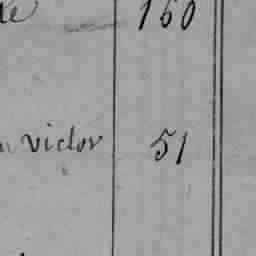 160
victor 51